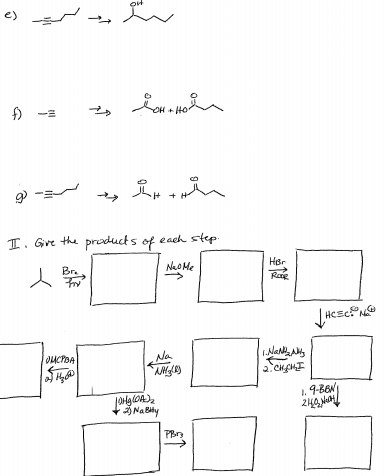 e) OH
f) OH + HO
g) H + H
II. Give the products of each step.
Br₂
hν
NaOMe
HBr
ROOR
HC≡C:⊖ Na⊕
1. NaNH₂, NH₃
2. CH₃CH₂I
Na
NH₃(l)
1) MCPBA
2) H₃O⊕
1. 9-BBN
2. H₂O₂, NaOH
1) Hg(OAc)₂
2) NaBH₄
PBr₃